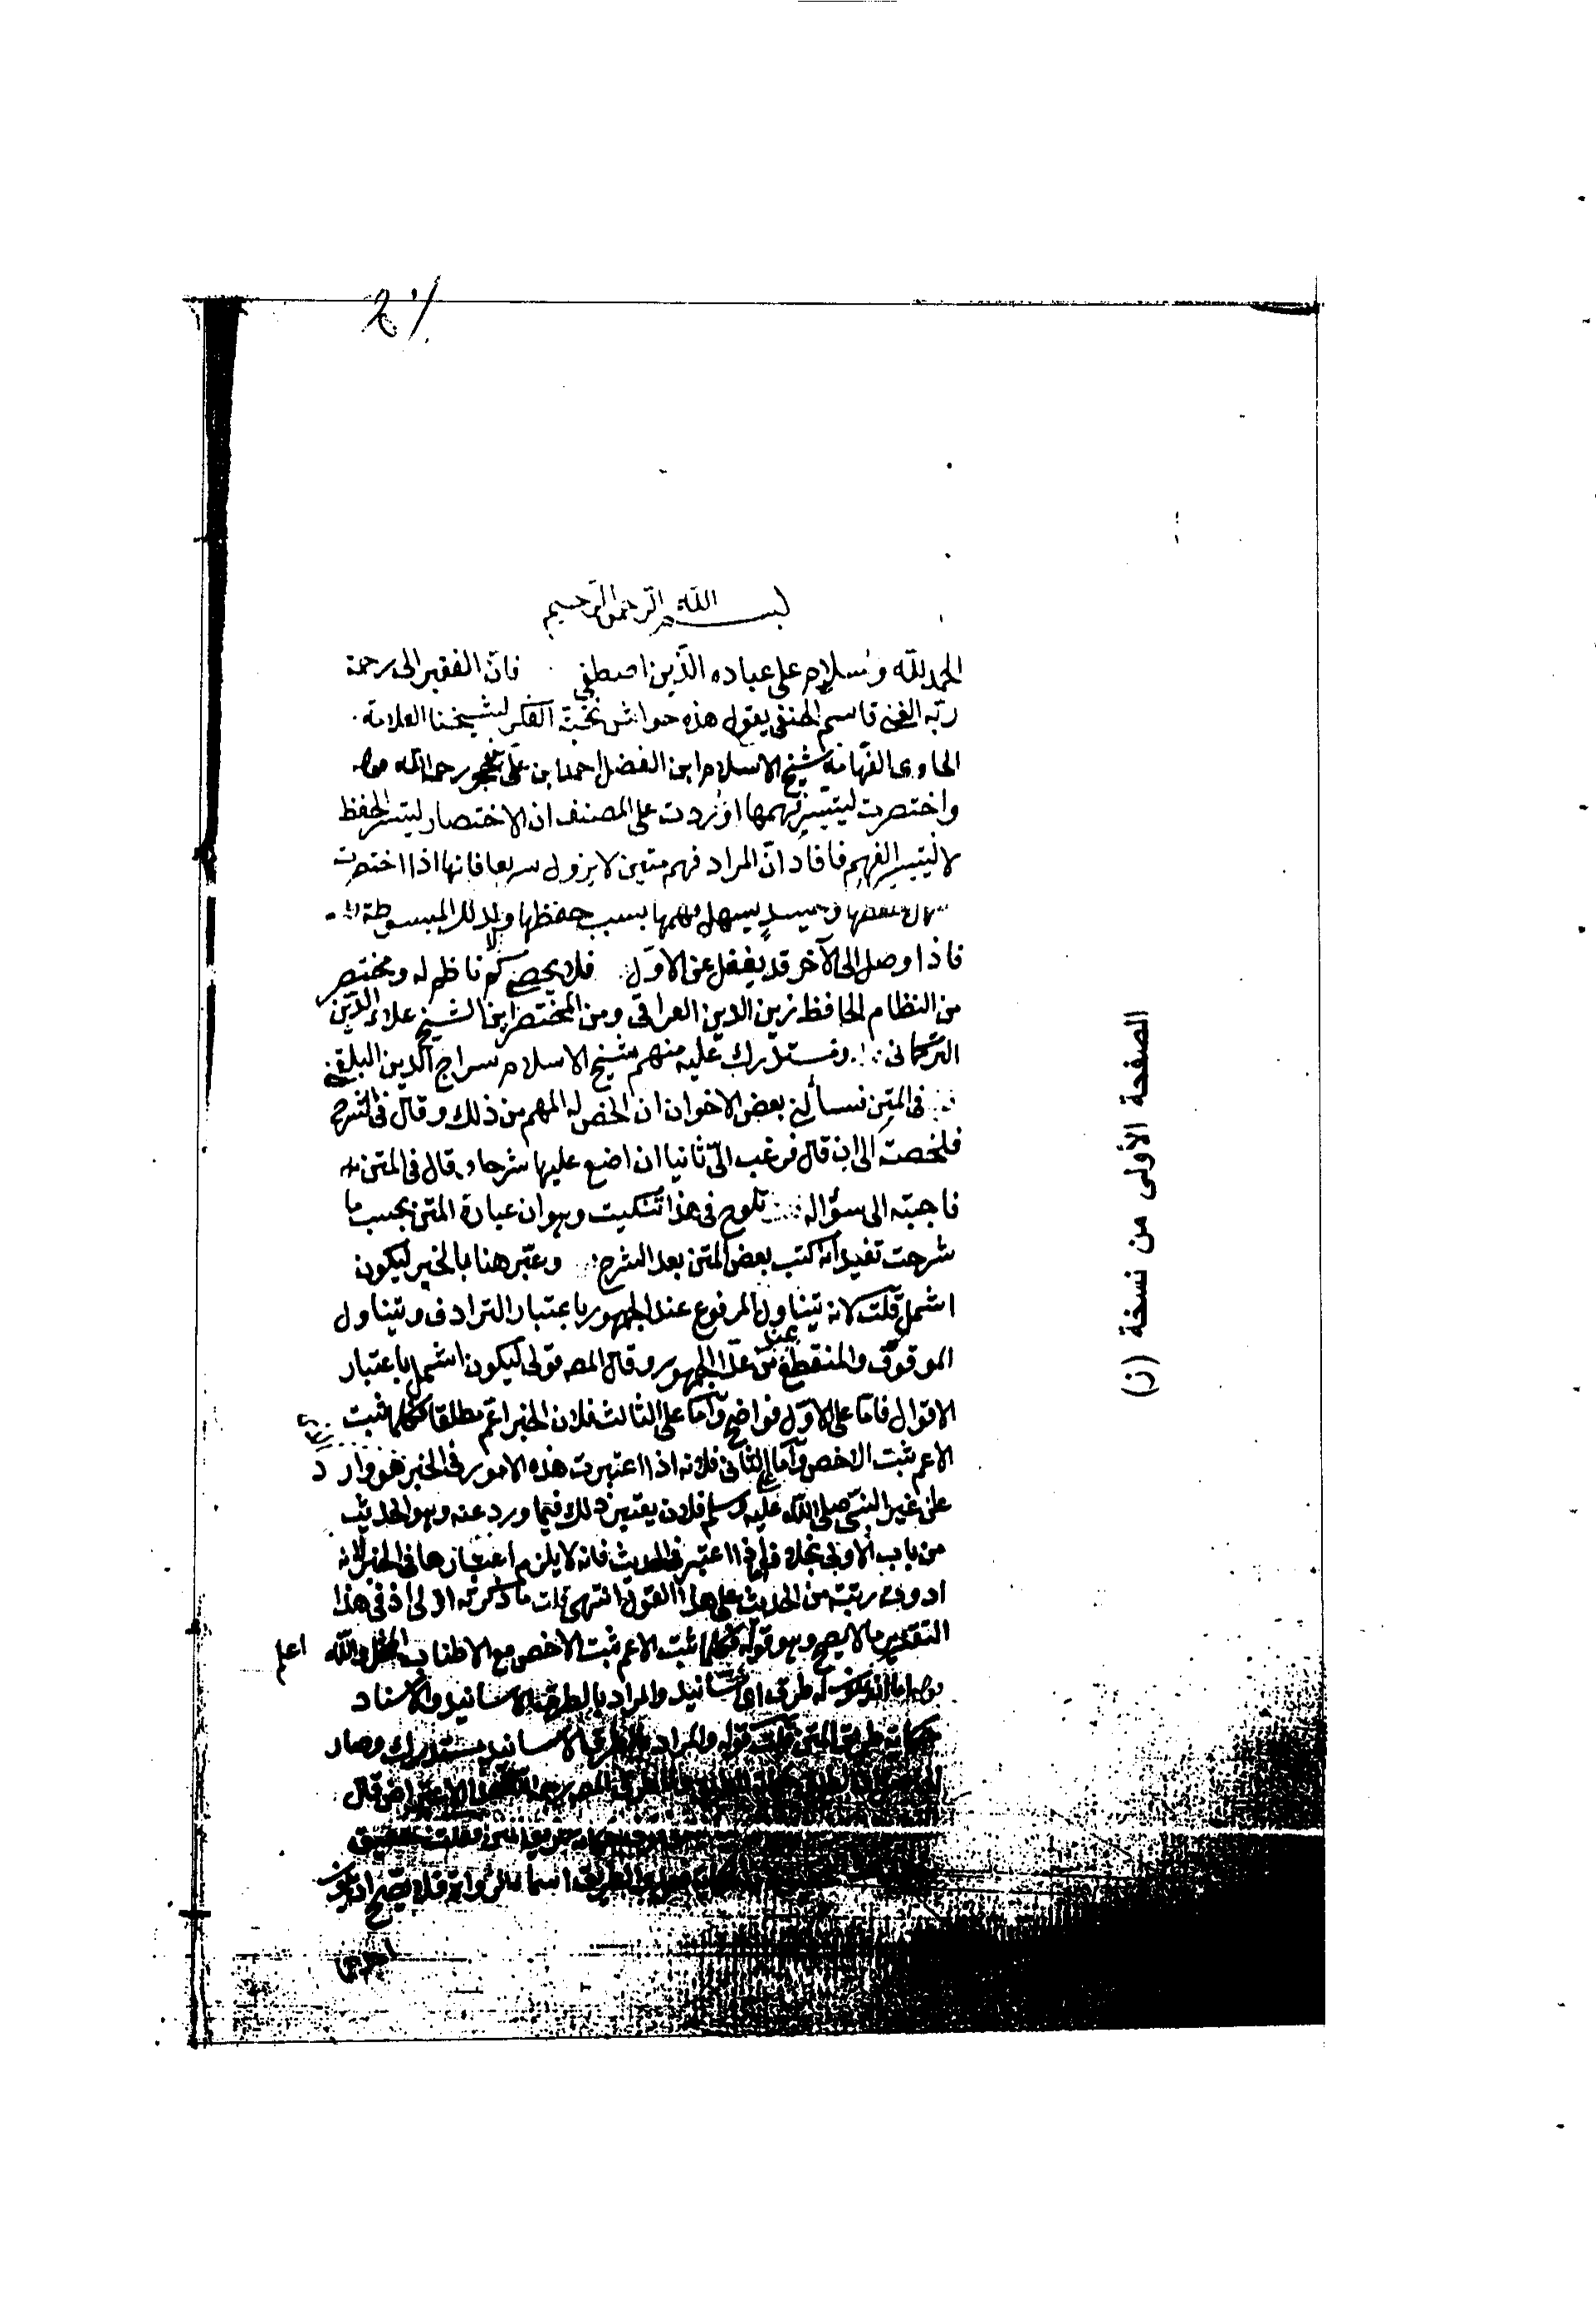 بسم الله الرحمن الرحيم
الحمد لله وسلام على عباده الذين اصطفى فان الفقير الى رحمة
ربه الغنى قاسم الحنفى يقول هذه حواش نخبة الفكر لشيخنا العلامة
الحاوى الفهامة شيخ الاسلام ابن الفضل احمد ابن على بن حجر رحمه الله
واختصرت ليتيسر فهمها اوردت على المصنف ان الاختصار ليتيسر الحفظ
لا ليتيسر الفهم فافاد ان المراد فهم متين لا يزول سريعا فانها اذا اختصرت
سهل حفظها وحينئذ يسهل فهمها بسبب حفظها ولا كذلك المبسوطة
فاذا وصل الى الآخر قد يغفل عن الاول فلا يحصى كم ناظم له ومختصر
من النظام الحافظ زين الدين العراقى ومن المختصرين الشيخ علاء الدين
التركمانى ومستدرك عليه منهم شيخ الاسلام سراج الدين البلقينى
فى المتن فسألنى بعض الاخوان ان الخص له المهم من ذلك وقال فى الشرح
فلخصت الى ان قال فرغب الىّ ثانيا ان اضع عليها شرحا وقال فى المتن
فاجبته الى سؤاله تلوح فى هذا تنكيت وهو ان عبارة المتن بحسب ما
شرحت تفيد انه كتب بعض المتن بعد الشرح وعبّر هنا بالخبر ليكون
اشمل قلت لانه يتناول المرفوع عند الجمهور باعتبار الترادف ويتناول
الموقوف والمنقطع عند من عدا الجمهور وقال المصـ قولى ليكون اشمل باعتبار
الاقوال فاما على الاول فواضح وأما على الثالث فلان الخبر اعم مطلقا فكلما ثبت
الاعم ثبت الاخص وأما على الثانى فلانه اذا اعتبرت هذه الامور فى الخبر هو وارد
على غير النبى صلى الله عليه وسلم فلان يعتبر ذلك فيما ورد عنه وهو الحديث
من باب الاولى بخلاف اذا اعتبر فى الحديث فانه لا يلزم اعتبارها فى الخبر لانه
ادون رتبة من الحديث على هذا القول انتهى قلت ما ذكرته اولى اذ فى هذا
التقدير ما لا يصح وهو قوله فكلما ثبت الاعم ثبت الاخص مع الاطناب المخل والله اعلم
اما ان يكون له طرق اى اسانيد والمراد بالطرق الاسانيد والاسناد
حكاية طريق المتن قلت قوله والمراد بالطرق الاسانيد مستدرك وصار
الاعتراض قال
حكاية طريق المتن فقلت
الطريق اسماء الرواة فلا يصح ان يكون
الصفحة الأولى من نسخة (ز)